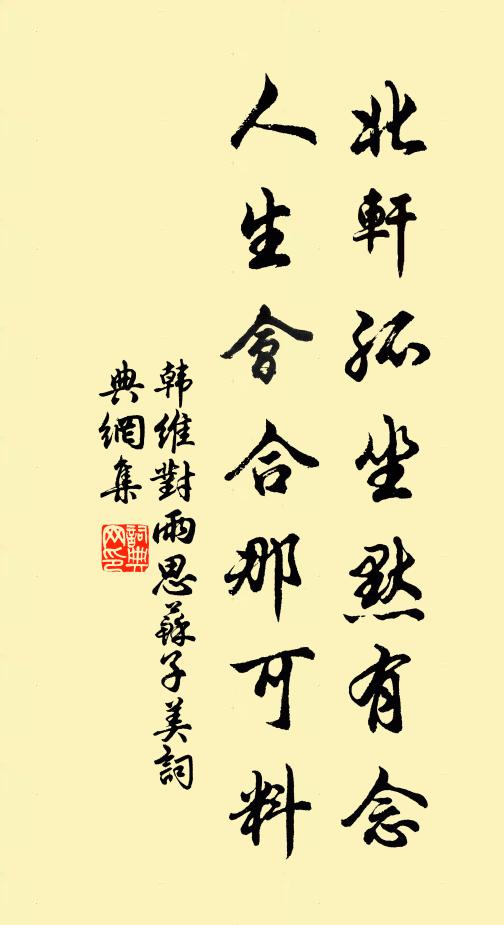 北軒孤坐默有念
人生會合那可料
韩維對雨思蘇子美詞
典網集
詞典
网印